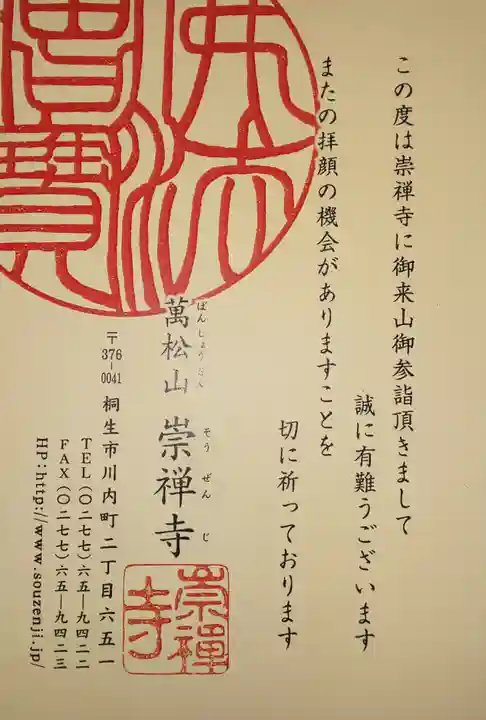 この度は崇禅寺に御来山御参詣頂きまして
誠に有難うございます
またの拝顔の機会がありますことを
切に祈っております
ばんしょうざん
萬松山
そうぜんじ
崇禅寺
〒376-0041 桐生市川内町二丁目六五一
TEL(〇二七七)六五―九四二二
FAX(〇二七七)六五―九四二三
HP:http://www.souzenji.jp/
佛法
僧寳
崇禪
寺